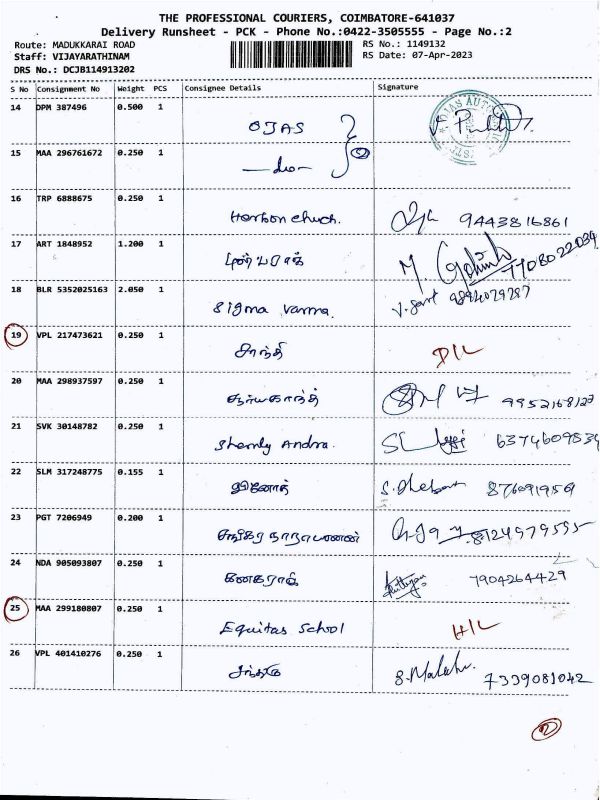 THE PROFESSIONAL COURIERS, COIMBATORE-641037
Delivery Runsheet - PCK - Phone No.:0422-3505555 - Page No.:2
Route: MADUKKARAI ROAD RS No.: 1149132
Staff: VIJAYARATHINAM RS Date: 07-Apr-2023
DRS No.: DCJB114913202
S No Consignment No Weight PCS Consignee Details Signature
14 DPM 387496 0.500 1 OJAS
15 MAA 296761672 0.250 1 -do-
16 TRP 6888675 0.250 1 9443816861
17 ART 1848952 1.200 1 M. 7708022034
18 BLR 5352025163 2.050 1 Sigma Varma.
19 VPL 217473621 0.250 1 சாந்தி D/L
20 MAA 298937597 0.250 1 சூர்யகாந்த்
21 SVK 30148782 0.250 1 6374609834
22 SLM 317248775 0.155 1 வினோத்
23 PGT 7206949 0.200 1 8124979595
24 NDA 905093807 0.250 1 கனகராஜ் 7904264429
25 MAA 299180807 0.250 1 Equitas School H/L
26 VPL 401410276 0.250 1 7339081042
2